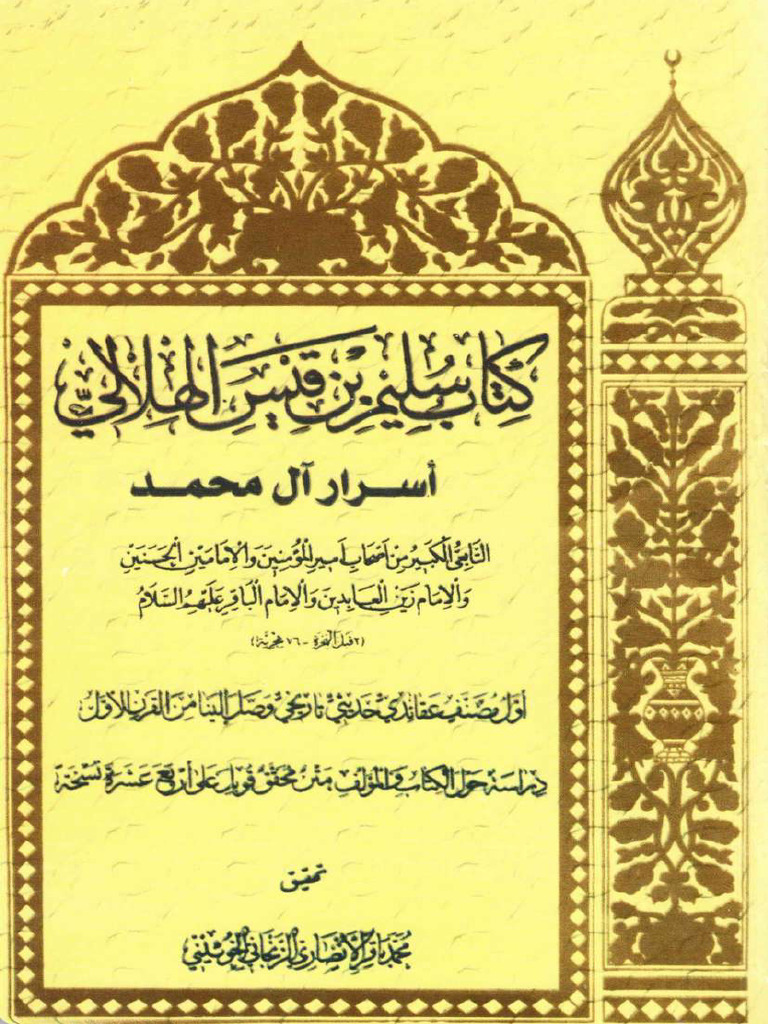 كتاب سليم بن قيس الهلالي
أسرار آل محمد
التابعي الكبير من أصحاب أمير المؤمنين والإمامين الحسنين
والإمام زين العابدين والإمام الباقر عليهم السلام
(٢ قبل الهجرة - ٧٦ هجرية)
أول مصنف عقائدي حديثي تاريخي وصل إلينا من القرن الأول
دراسة حول الكتاب والمؤلف متن محقق قوبل على أربع عشرة نسخة
تحقيق
محمد باقر الأنصاري الزنجاني الخوئيني